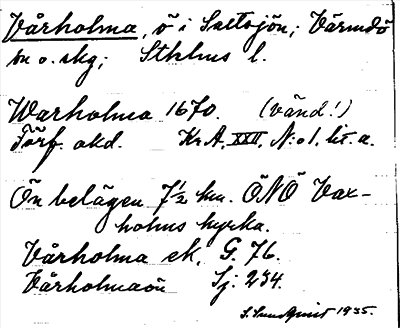 Vårholma, ö i Saltsjön; Värmdö
sn o. skg; Sthlms l.
Warholma 1670. (vänd!)
Förf. okd. Kr.A. XXII, N:o 1, lit. a.
Ön belägen 7½ km. ÖNÖ Vax-
holms kyrka.
Vårholma ek. G. 76.
Vårholmaön Sj. 234.
S. Sundquist 1935.